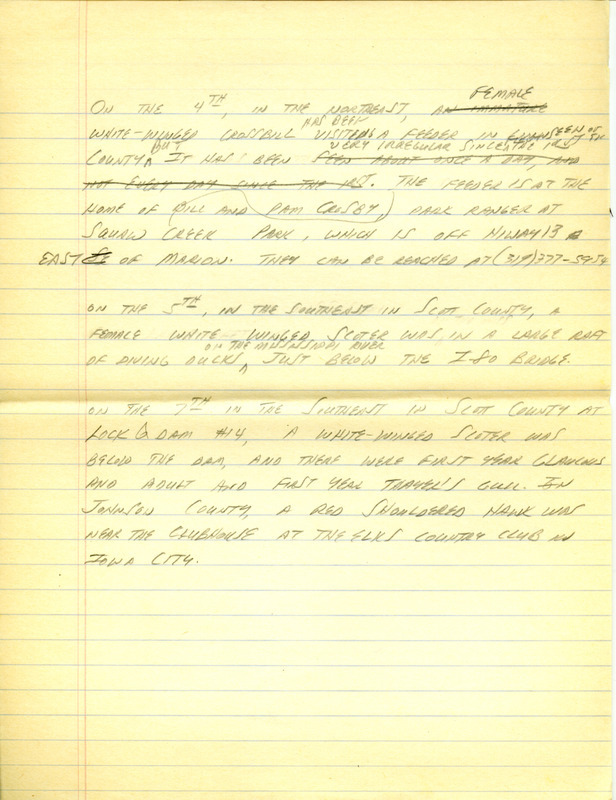 FEMALE
ON THE 4TH, IN THE NORTHEAST, AN IMMATURE
HAS BEEN
WHITE-WINGED CROSSBILL VISITING A FEEDER IN LINN SEEN ON
BUT VERY IRREGULAR SINCE THE 1ST
COUNTY, IT HAS BEEN SEEN ABOUT ONCE A DAY, AND
NOT EVERY DAY SINCE THE 1ST. THE FEEDER IS AT THE
HOME OF BILL AND PAM CROSBY, PARK RANGER AT
SQUAW CREEK PARK, WHICH IS OFF HIWAY 13
EAST OF MARION. THEY CAN BE REACHED AT (319) 377-5954
ON THE 5TH, IN THE SOUTHEAST IN SCOT COUNTY, A
FEMALE WHITE-WINGED SCOTER WAS IN A LARGE RAFT
ON THE MISSISSIPPI RIVER
OF DIVING DUCKS, JUST BELOW THE I-80 BRIDGE.
ON THE 7TH IN THE SOUTHEAST IN SCOTT COUNTY AT
LOCK & DAM #14, A WHITE-WINGED SCOTER WAS
BELOW THE DAM, AND THERE WERE FIRST YEAR GLAUCOUS
AND ADULT AND FIRST YEAR THAYER'S GULL. IN
JOHNSON COUNTY, A RED SHOULDERED HAWK WAS
NEAR THE CLUBHOUSE AT THE ELKS COUNTRY CLUB IN
IOWA CITY.